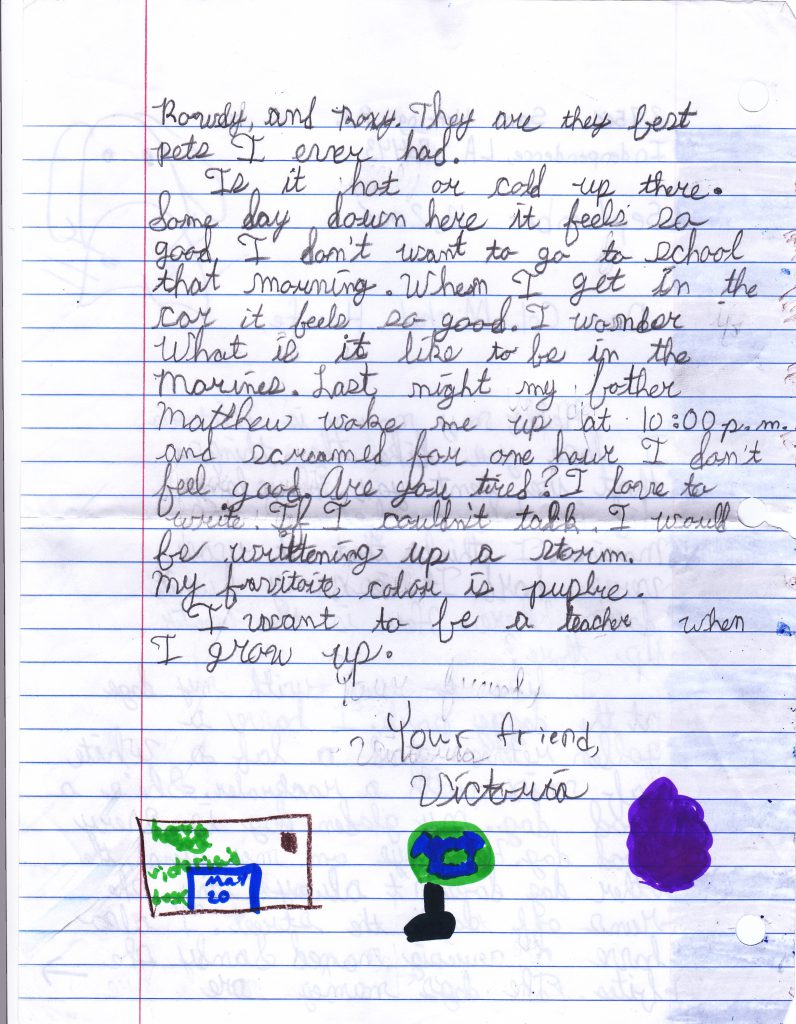 Rowdy, and Roxy. They are they best
pets I ever had.
Is it hot or cold up there.
Some day down here it feels so
good, I don't want to go to school
that morning. When I get in the
car it feels so good. I wonder
What is it like to be in the
Marines. Last night my bother
Matthew woke me up at 10:00 p.m.
and screamed for one hour I don't
feel good. Are you tired? I love to
write. If I couldn't talk. I would
be writtening up a storm.
My favitoite color is puplre.
I want to be a teacher when
I grow up.
Your friend,
Victoria
May
20